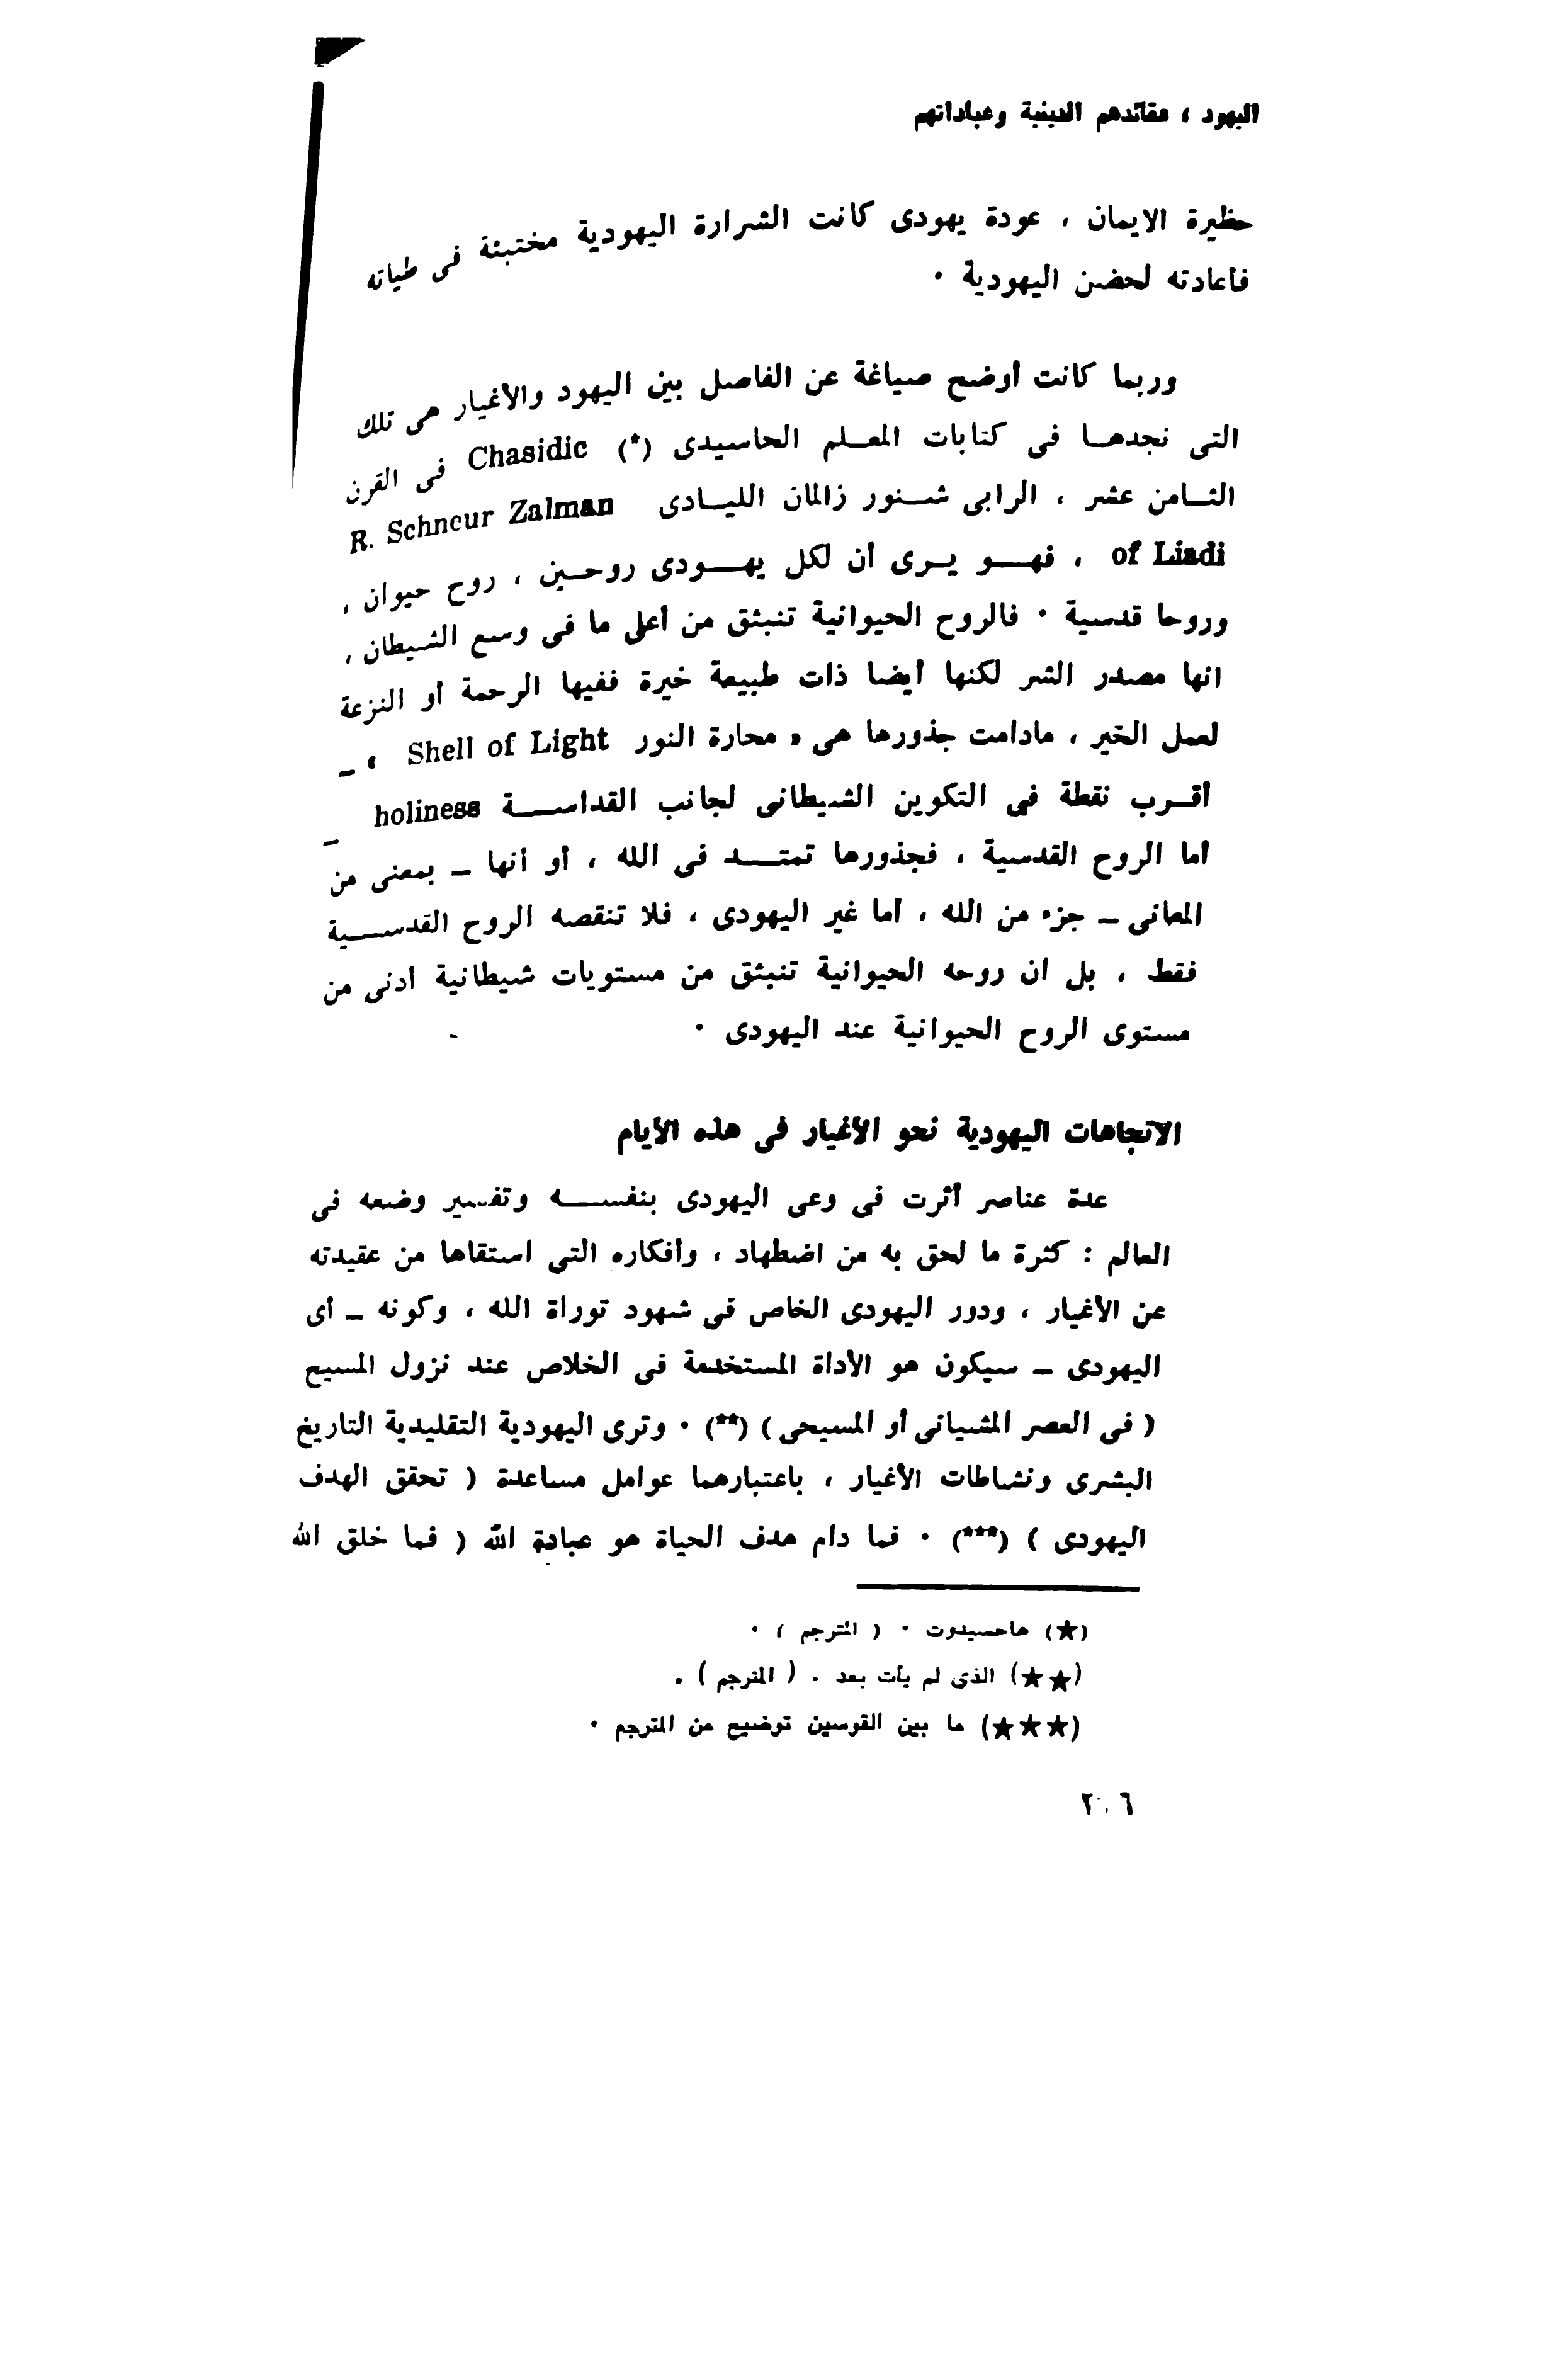 اليهود ، عقائدهم الدينية وعباداتهم
حظيرة الايمان ، عودة يهودى كانت الشرارة اليهودية مختبئة فى طياته
فأعادته لحضن اليهودية ·
وربما كانت أوضح صياغة عن الفاصل بين اليهود والأغيار هى تلك
التى نجدهــا فى كتابات المعــلم الحاسيدى (*) Chasidic فى القرن
الثــامن عشر ، الرابى شــنور زالمان الليــادى R. Schneur Zalman
of Liadi ، فهــو يــرى أن لكل يهــودى روحــين ، روح حيوان ،
وروحا قدسية · فالروح الحيوانية تنبثق من أعلى ما فى وسع الشيطان ،
انها مصدر الشر لكنها أيضا ذات طبيعة خيرة ففيها الرحمة أو النزعة
لعمل الخير ، مادامت جذورها هى « محارة النور Shell of Light » ـ
أقــرب نقطة فى التكوين الشيطانى لجانب القداســـة holiness ـ
أما الروح القدسية ، فجذورها تمتــد فى الله ، أو أنها ـ بمعنى من
المعانى ـ جزء من الله ، أما غير اليهودى ، فلا تنقصه الروح القدســـية
فقط ، بل ان روحه الحيوانية تنبثق من مستويات شيطانية أدنى من
مستوى الروح الحيوانية عند اليهودى ·
الاتجاهات اليهودية نحو الأغيار فى هذه الأيام
عدة عناصر أثرت فى وعى اليهودى بنفســـه وتفسير وضعه فى
العالم : كثرة ما لحق به من اضطهاد ، وأفكاره التى استقاها من عقيدته
عن الأغيار ، ودور اليهودى الخاص فى شهود توراة الله ، وكونه ـ أى
اليهودى ـ سيكون هو الأداة المستخدمة فى الخلاص عند نزول المسيح
( فى العصر المشيانى أو المسيحى ) (**) · وترى اليهودية التقليدية التاريخ
البشرى ونشاطات الأغيار ، باعتبارهما عوامل مساعدة ( تحقق الهدف
اليهودى ) (***) · فما دام هدف الحياة هو عبادة الله ( فما خلق الله
(★) هاحسيدوت · ( المترجم ) ·
(★★) الذى لم يأت بعد . ( المترجم ) .
(★★★) ما بين القوسين توضيح من المترجم ·
٢٠٦